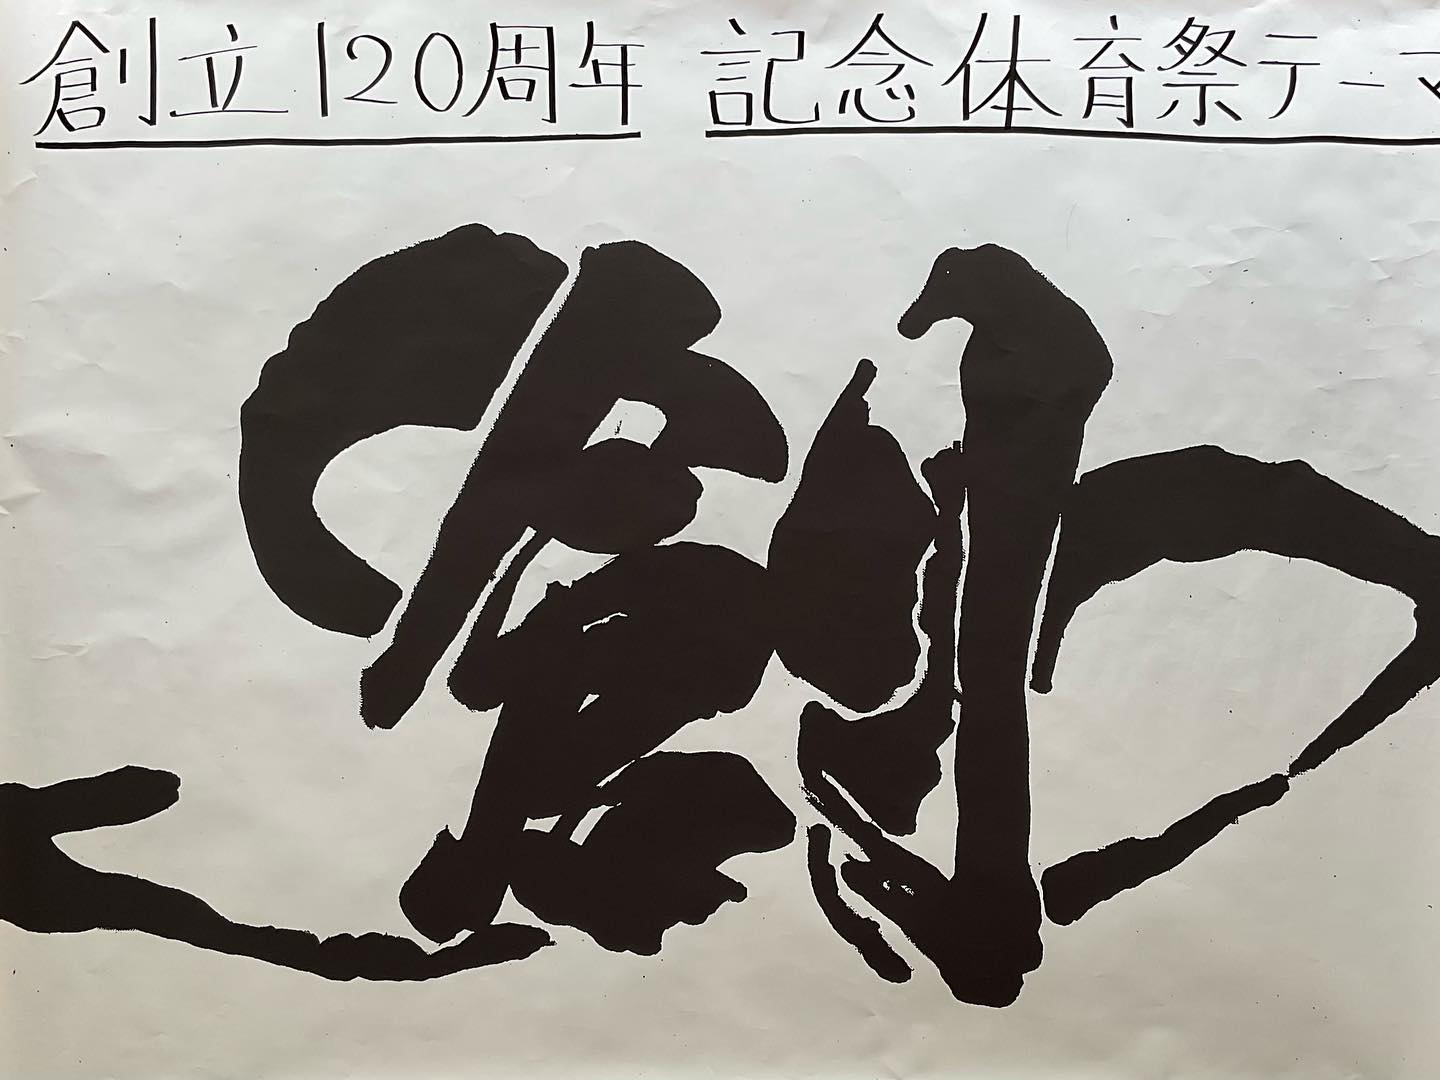 創立120周年 記念体育祭テーマ
創